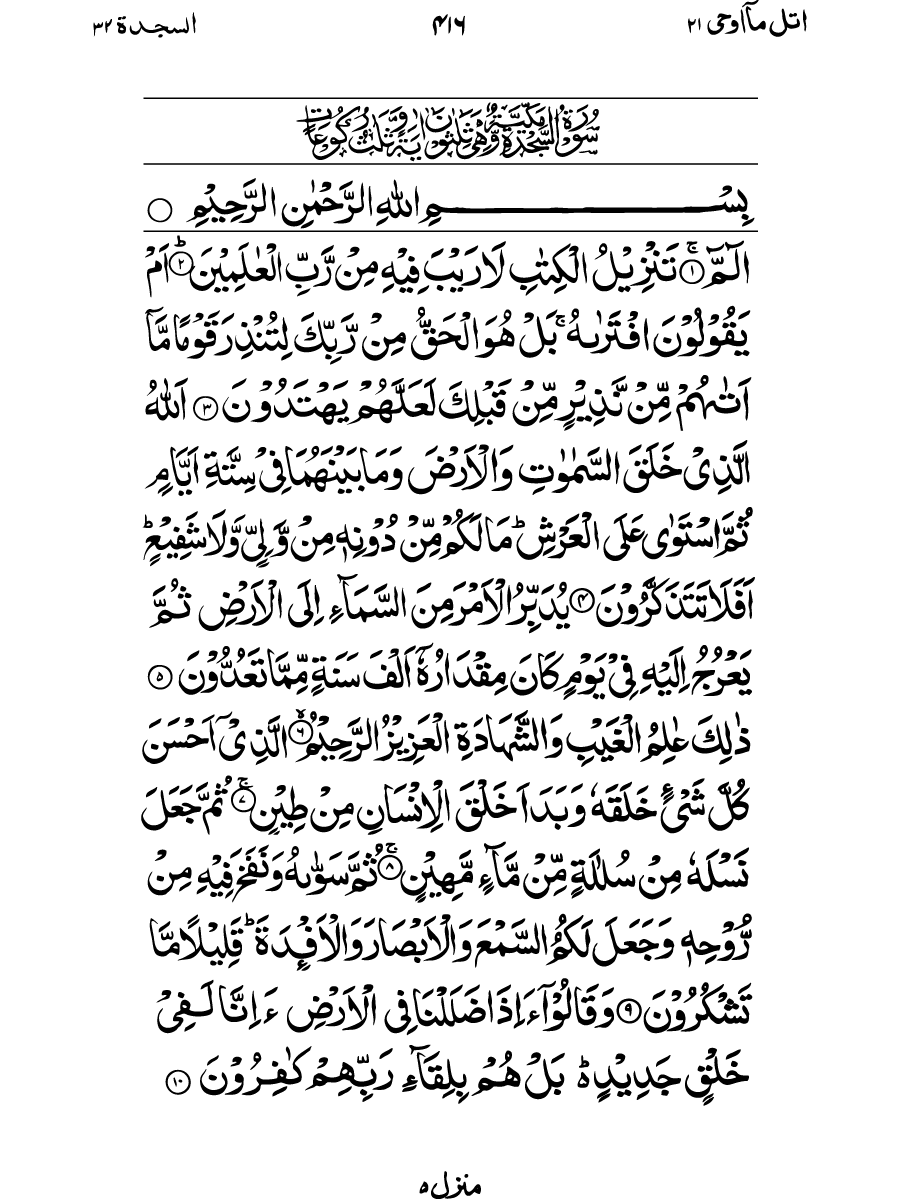 اتل مآاوحی ۲۱
۴۱۶
السجدة ۳۲
سُوۡرَةُ السَّجۡدَةِ مَكِّيَّةٌ وَّهِیَ ثَلٰثُوۡنَ اٰيَةً وَّثَلٰثُ رُكُوۡعَاتٍ
بِسۡمِ اللهِ الرَّحۡمٰنِ الرَّحِيۡمِ ○
الٓـمّٓ ۚ‏﴿۱﴾ تَنۡزِيۡلُ الۡكِتٰبِ لَا رَيۡبَ فِيۡهِ مِنۡ رَّبِّ الۡعٰلَمِيۡنَ ؕ‏﴿۲﴾ اَمۡ
يَقُوۡلُوۡنَ افۡتَرٰٮهُ‌ۚ بَلۡ هُوَ الۡحَقُّ مِنۡ رَّبِّكَ لِتُنۡذِرَ قَوۡمًا مَّاۤ
اَتٰٮهُمۡ مِّنۡ نَّذِيۡرٍ مِّنۡ قَبۡلِكَ لَعَلَّهُمۡ يَهۡتَدُوۡنَ‏﴿۳﴾ اَللّٰهُ
الَّذِىۡ خَلَقَ السَّمٰوٰتِ وَالۡاَرۡضَ وَمَا بَيۡنَهُمَا فِىۡ سِتَّةِ اَيَّامٍ
ثُمَّ اسۡتَوٰى عَلَى الۡعَرۡشِ‌ؕ مَا لَكُمۡ مِّنۡ دُوۡنِهٖ مِنۡ وَّلِىٍّ وَّلَا شَفِيۡعٍ‌ؕ
اَفَلَا تَتَذَكَّرُوۡنَ‏﴿۴﴾ يُدَبِّرُ الۡاَمۡرَ مِنَ السَّمَآءِ اِلَى الۡاَرۡضِ ثُمَّ
يَعۡرُجُ اِلَيۡهِ فِىۡ يَوۡمٍ كَانَ مِقۡدَارُهٗۤ اَلۡفَ سَنَةٍ مِّمَّا تَعُدُّوۡنَ‏﴿۵﴾
ذٰلِكَ عٰلِمُ الۡغَيۡبِ وَالشَّهَادَةِ الۡعَزِيۡزُ الرَّحِيۡمُۙ‏﴿۶﴾ الَّذِىۡۤ اَحۡسَنَ
كُلَّ شَىۡءٍ خَلَقَهٗ‌ وَبَدَاَ خَلۡقَ الۡاِنۡسَانِ مِنۡ طِيۡنٍ‌ۚ‏﴿۷﴾ ثُمَّ جَعَلَ
نَسۡلَهٗ مِنۡ سُلٰلَةٍ مِّنۡ مَّآءٍ مَّهِيۡنٍ‌ۚ‏﴿۸﴾ ثُمَّ سَوّٰٮهُ وَنَفَخَ فِيۡهِ مِنۡ
رُّوۡحِهٖ‌ وَجَعَلَ لَكُمُ السَّمۡعَ وَالۡاَبۡصَارَ وَالۡاَفۡـِٕدَةَ‌ ؕ قَلِيۡلًا مَّا
تَشۡكُرُوۡنَ‏﴿۹﴾ وَقَالُوۡٓا ءَاِذَا ضَلَلۡنَا فِى الۡاَرۡضِ ءَاِنَّا لَفِىۡ
خَلۡقٍ جَدِيۡدٍ ؕ بَلۡ هُمۡ بِلِقَآءِ رَبِّهِمۡ كٰفِرُوۡنَ‏﴿۱۰﴾
منزل ۵